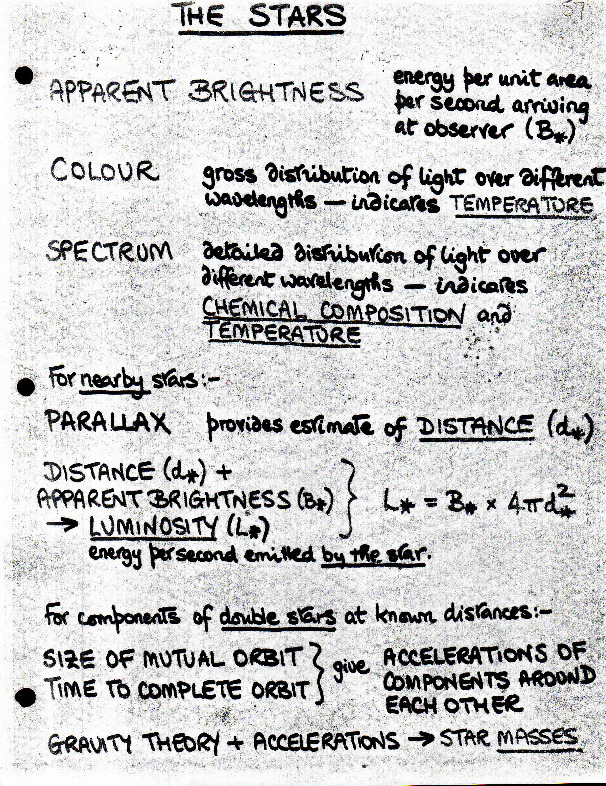 THE STARS
37
APPARENT BRIGHTNESS energy per unit area
per second arriving
at observer (B*)
COLOUR gross distribution of light over different
wavelengths — indicates TEMPERATURE
SPECTRUM detailed distribution of light over
different wavelengths — indicates
CHEMICAL COMPOSITION and
TEMPERATURE
For nearby stars:-
PARALLAX provides estimate of DISTANCE (d*)
DISTANCE (d*) +
APPARENT BRIGHTNESS (B*) } L* = B* × 4πd*²
→ LUMINOSITY (L*)
energy per second emitted by the star.
For components of double stars at known distances:-
SIZE OF MUTUAL ORBIT } give ACCELERATIONS OF
TIME TO COMPLETE ORBIT COMPONENTS AROUND
EACH OTHER
GRAVITY THEORY + ACCELERATIONS → STAR MASSES